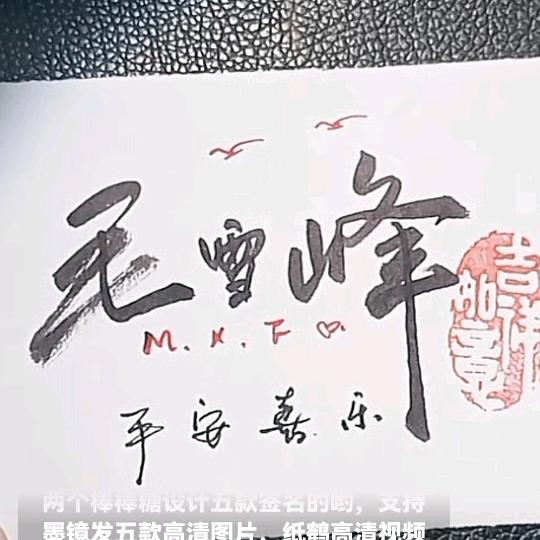 毛雪峰
M.X.F
平安喜乐
吉祥如意
两个棒棒糖设计五款签名的哟，支持
墨镜发五款高清图片、纸鹤高清视频